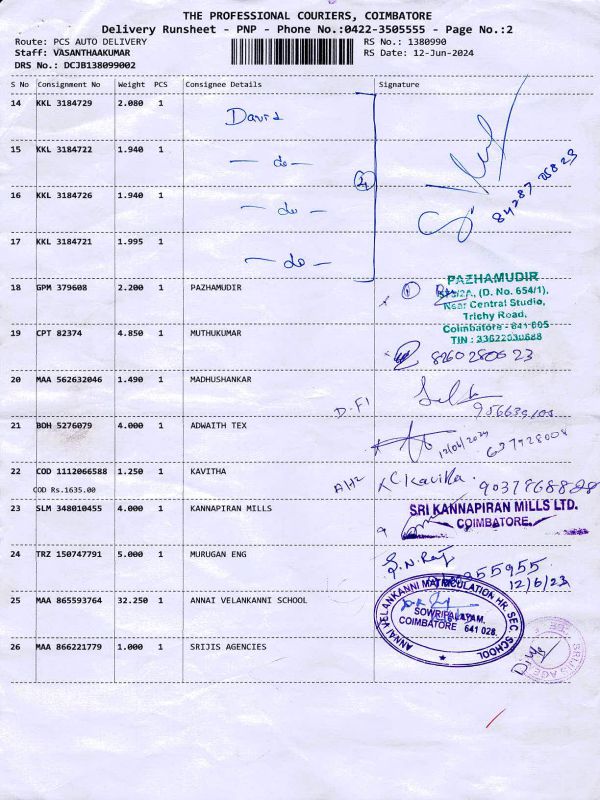 THE PROFESSIONAL COURIERS, COIMBATORE
Delivery Runsheet - PNP - Phone No.:0422-3505555 - Page No.:2
Route: PCS AUTO DELIVERY RS No.: 1380990
Staff: VASANTHAAKUMAR RS Date: 12-Jun-2024
DRS No.: DCJB138099002
S No Consignment No Weight PCS Consignee Details Signature
14 KKL 3184729 2.080 1 David
15 KKL 3184722 1.940 1 - do -
16 KKL 3184726 1.940 1 - do -
17 KKL 3184721 1.995 1 - do -
18 GPM 379608 2.200 1 PAZHAMUDIR
PAZHAMUDIR
(D. No. 654/1),
Near Central Studio,
Trichy Road,
Coimbatore - 641 005
TIN : 33622030688
19 CPT 82374 4.850 1 MUTHUKUMAR
20 MAA 562632046 1.490 1 MADHUSHANKAR
21 BOH 5276079 4.000 1 ADWAITH TEX 12/06/2024
22 COD 1112066588 1.250 1 KAVITHA
COD Rs.1635.00
23 SLM 348010455 4.000 1 KANNAPIRAN MILLS
SRI KANNAPIRAN MILLS LTD.
COIMBATORE.
24 TRZ 150747791 5.000 1 MURUGAN ENG
12/6/23
25 MAA 865593764 32.250 1 ANNAI VELANKANNI SCHOOL
ANNAI VELANKANNI MATRICULATION HR. SEC. SCHOOL
SOWRIPALAYAM.
COIMBATORE 641 028.
26 MAA 866221779 1.000 1 SRIJIS AGENCIES